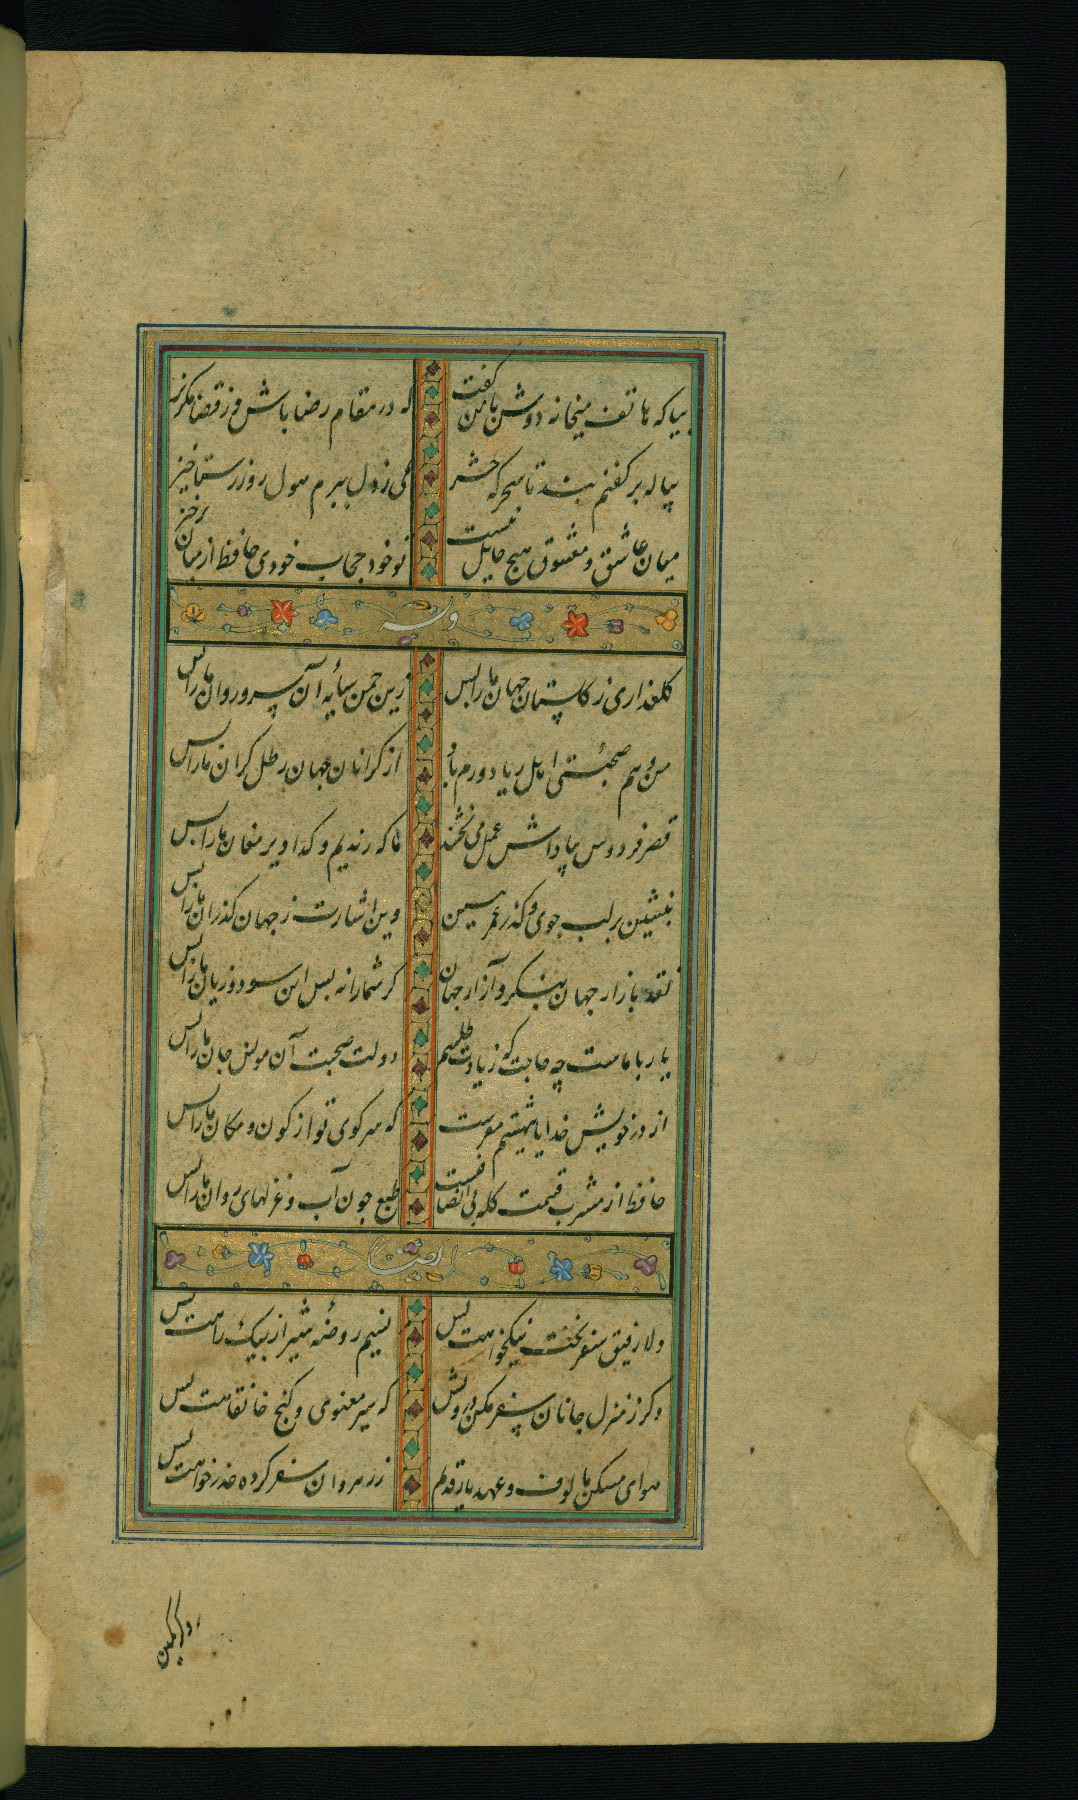 بیا که هاتف میخانه دوش با من گفت
که در مقام رضا باش و ز قضا مگریز
پیاله بر کفنم بند تا سحرکه حشر
بمی ز دل ببرم هول روز رستاخیز
میان عاشق و معشوق هیچ حایل نیست
تو خود حجاب خودی حافظ از میان برخیز
وله
کلعذاری ز کلستان جهان ما را بس
زین چمن سایه آن سرو روان ما را بس
من و هم صحبتی اهل ریا دورم باد
از کرانان جهان رطل کران ما را بس
قصر فردوس بپاداش عمل می بخشند
ما که رندیم و کدا دیر مغان ما را بس
بنشین بر لب جوی و کذر عمر ببین
وین اشارت ز جهان کذران ما را بس
نقد بازار جهان بنکر و آزار جهان
کر شما را نه بس این سود و زیان ما را بس
یار با ماست چه حاجت که زیادت طلبیم
دولت صحبت آن مونس جان ما را بس
از در خویش خدایا ببهشتم مفرست
که سر کوی تو از کون و مکان ما را بس
حافظ از مشرب قسمت کله بی انصافیست
طبع چون آب و غزلهای روان ما را بس
ایضا
دلا رفیق سفر بخت نیکخواهت بس
نسیم روضه شیراز پیک راهت بس
دکر ز منزل جانان سفر مکن درویش
که سیر معنوی و کنج خانقاهت بس
هوای مسکن مالوف و عهد یار قدیم
ز رهروان سفر کرده عذر خواهت بس